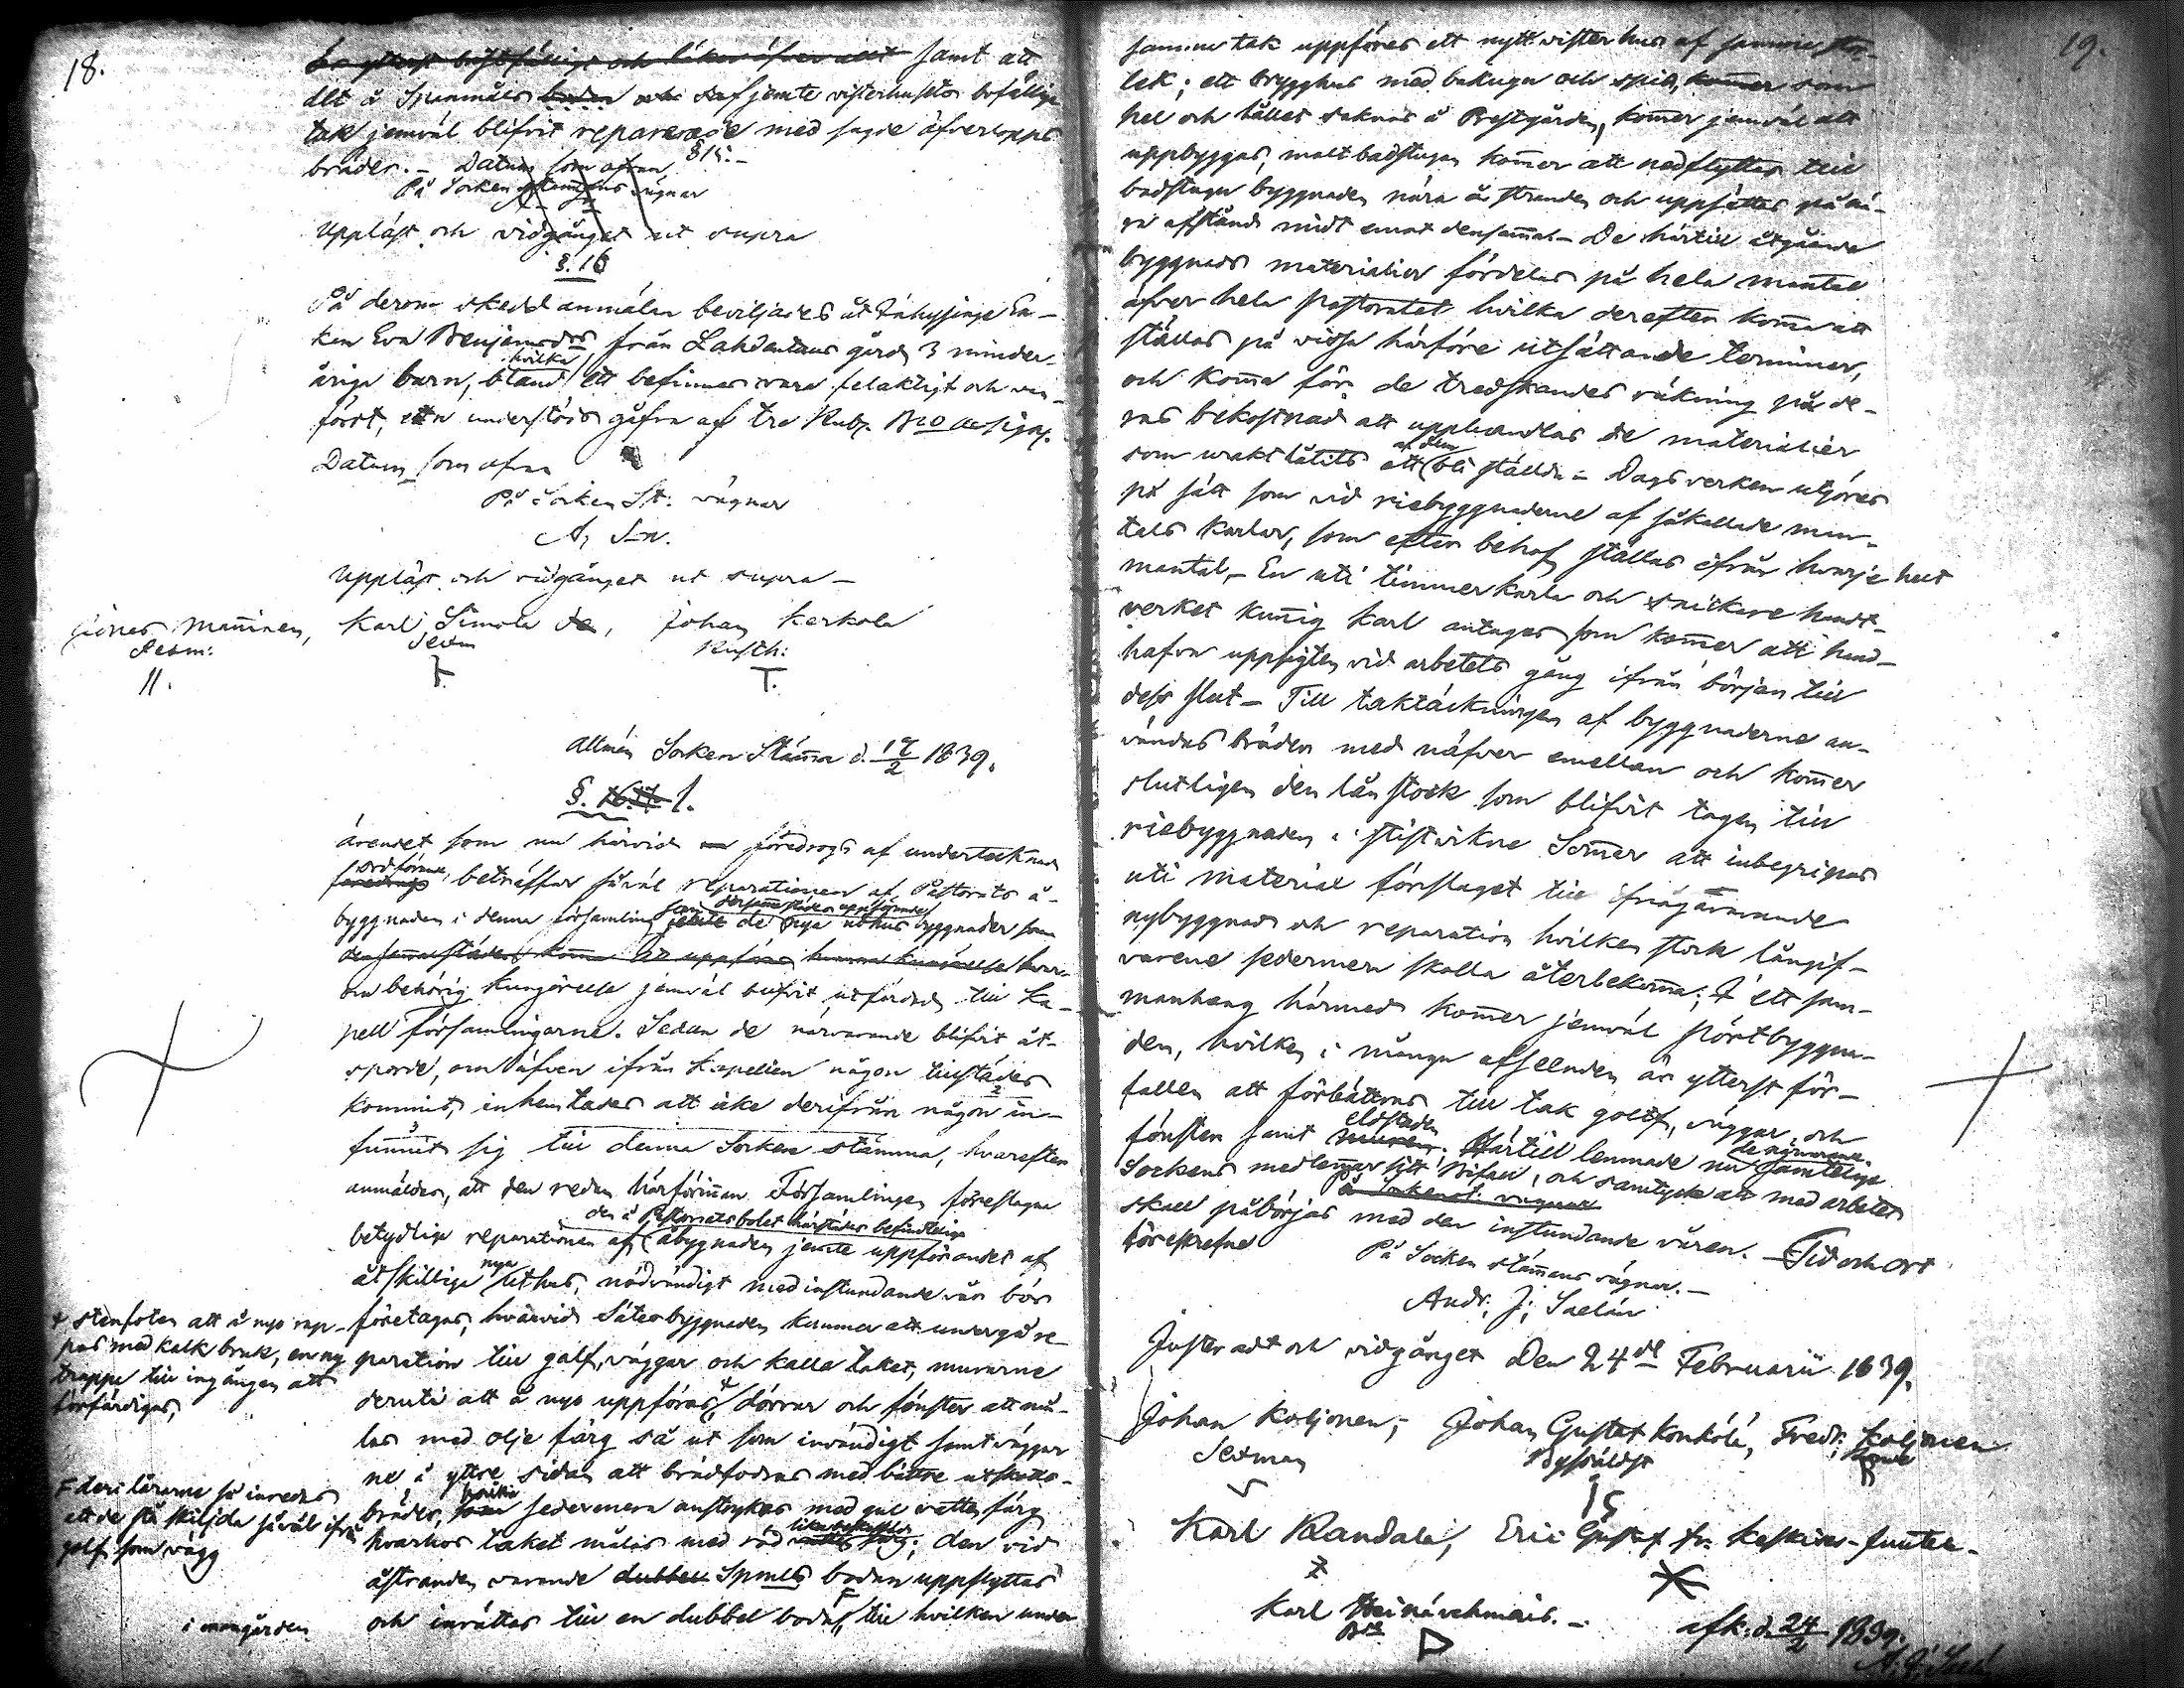 18.
samt att
det å Spanmåls boden och jemte visterhusets bofällige
tak jemväl blifvit reparerade med sagde öfverlopps
bräder. – Datum som ofvan §15. –
På Sorken stämmans vägnar
Uppläst och vidgånget ut supra
§. 16
På derom skedd anmälan beviljades åt Inhysinge En-
kan Eva Benjamsdr från Lahdentaus gård 3 minder-
årige barn, bland hvilka ett befinnes vara felaktigt och van-
fört, ett understöd gifva af tre Rub. Bco Assign.
Datum som ofvan
På Sorken St: vägnar
A. S–n.
Uppläst och vidgånget ut supra –
Manninen, Karl Simola, Johan Kerkola
Sexm: Sexm Rusth:
11. T.
Allmän Sorken Stämma d. 17/2 1839.
§. 1.
ärendet som nu härvid föredrogs af undertecknad
ordförande, beträffar såväl reparationen af Pastorats å-
byggnaden i denna församling som de nya uthus byggnader som
dersammastädes uppförandes
om behörig Kungörelse jemväl blifvit utfärdad till Ka-
pell Församlingarne. Sedan de närvarande blifvit åt-
sporde, om äfven ifrån Kapellen någon tillstädes
kommit, inhemtades att icke derifrån någon in-
funnit sig till denna Sorken stämma, hvarefter
anmäldes, att den redan härförinnan Församlingen föreslagne
betydliga reparationen af den å Pastoratsbolet härstädes befindtelige åbygnaden jemte uppförandet af
åtskillige nya uthus, nödvändigt med instundande vår bör
företagas, hvarvid Säteribyggnaden kommer att undergå re-
paration till golf, väggar och kalla taket, murarne
deruti att å nyo uppföras, + dörrar och fönster att må-
las med olje färg så ut som invändigt samt väggar
ne å yttre sidan att brädfodras med bättre utskotts-
bräder, hvilka sedermera anstrykes med gul vatten färg
hvarhos taket målas med röd likabeskaffad färg; den vid
åstranden varande Spmls bodan uppflyttas
och inrättas till en dubbel bodaF, till hvilken under
+ stenfoten att å nyo rap-
pas med kalk bruk, en ny
trappa till ingången att
förfärdigas,
F deri lårarne så inredas
att de stå skiljda såväl ifrån
golf som vägg
i mangården
19.
samma tak uppföres ett nytt visterhus af samma stor-
lek; ett brygghus med bakugn och spis, som
hel och hållet saknas å Prestgården, kommer jemväl att
uppbyggas, malt badstugan kommer att nedflyttas till
badstugu byggnaden nära åstranden och uppsättas på nå-
gå afstånd midt emot densamma. – De härtill åtgående
byggnads materialier fördelas på hela mantal
öfver hela pastoratet hvilka derefter komma att
ställas på vissa härföre utsättande terminer,
och komma för de tredskandes räkning på de-
ras bekostnad att upphandlas de materialier
som uraktlåtits att af dem bli ställda. – Dagsverken utgöres
på sätt som vid riebyggnaderne af såkallade man-
tals karlar, som efter behof ställas ifrån hvarje helt
mantal. – En uti timmerkarla och snickare handt-
verket kunnig karl antages som kommer att hand-
hafva uppsigten vid arbetets gång ifrån början till
dess slut – Till taktäckningen af byggnaderne an-
vändas bräder med näfver emellan och kommer
slutligen den lån stock som blifvit tagen till
riebyggnaden i sistvikne Sommar att inbegripas
uti material förslaget till ifrågavarande
nybyggnad och reparation hvilken stock långif-
varene sedermera skola återbekomma; I ett sam-
manhang härmed kommer jemväl pörtbyggna-
den, hvilken i många afseenden är ytterst för-
fallen att förbättras till tak golf, väggar och
fönster samt eldstaden. Härtill lemnade nu de närvarande samtelige
Sockens medlemmar sitt bifall, och samtycke att med arbetet
skall påbörjas med den instundande våren. – Tid och ort
föreskrefne
På Sorken stämmans vägnar. –
Andr. J: Saelán
Justeradt och vidgånget Den 24de Februarii 1839.
Johan Koljonen, Johan Gustaf Konkola, Fredr: Koljonen
Sexman Byålderst
Karl Randala, Eric Gustaf fr. Keskivas-
Karl Heinävehmais. –
afk. d. 24/2 1839.
A. J. Sael